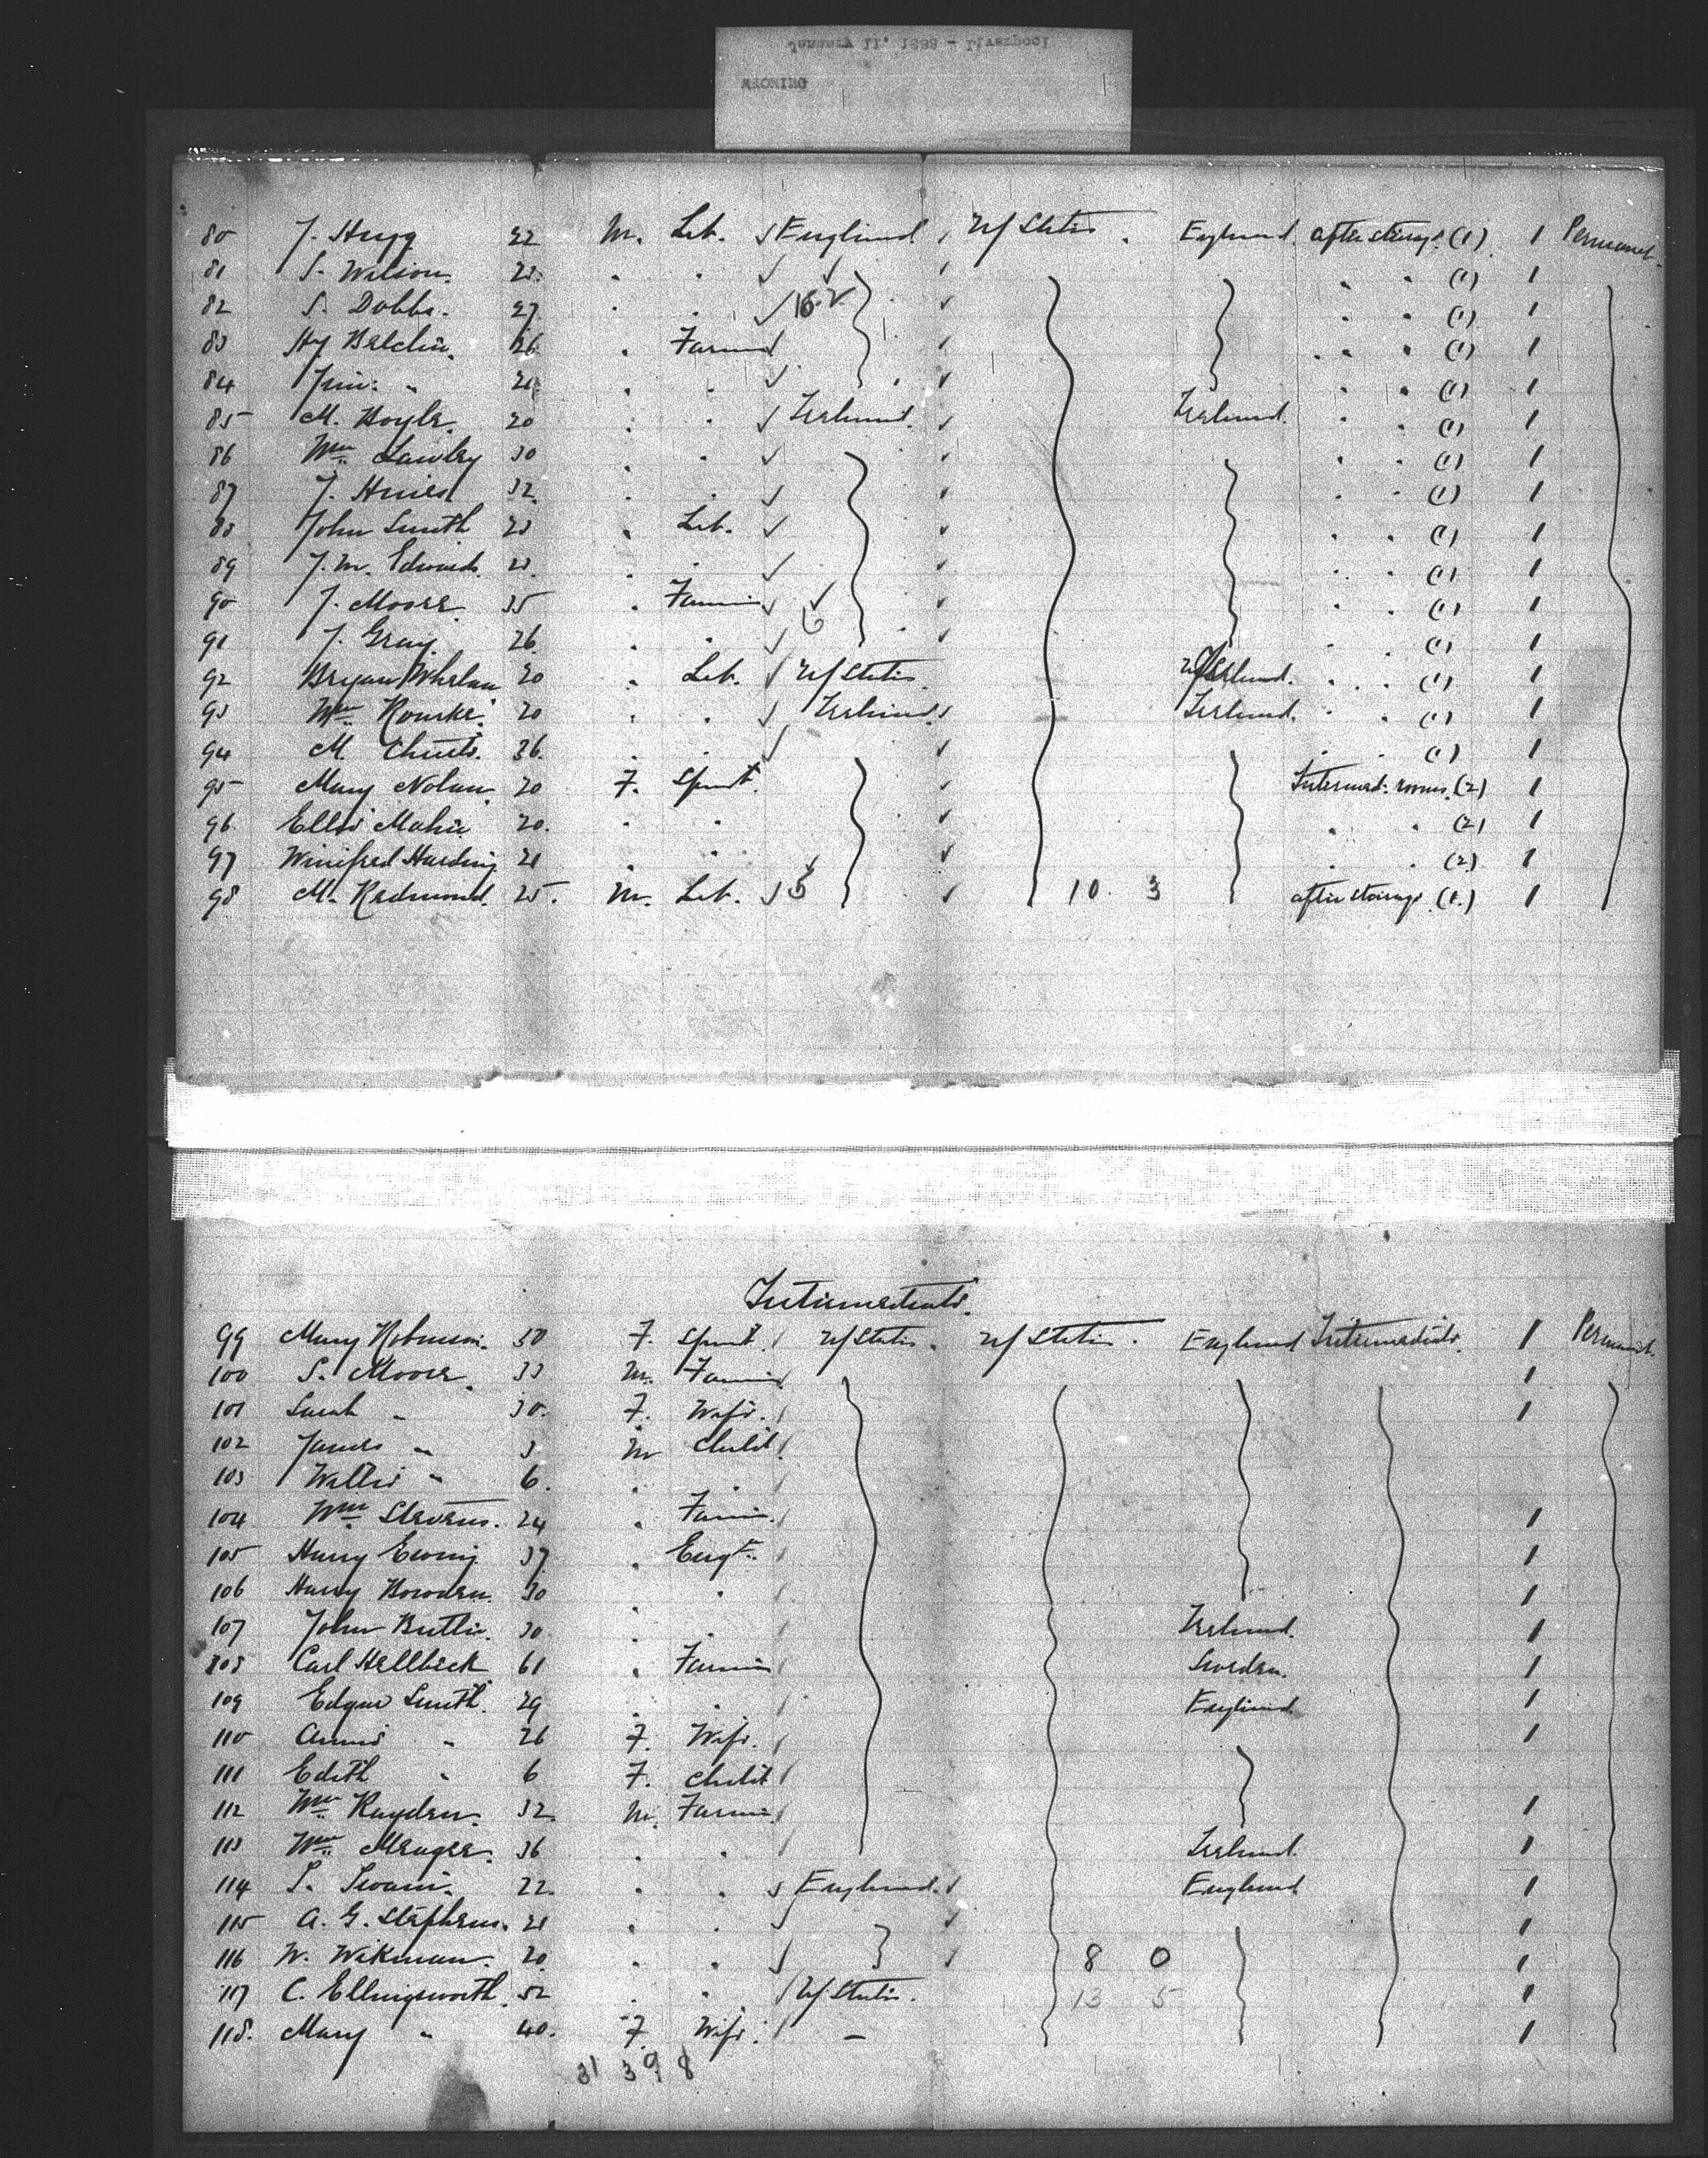 January 11, 1888 - Liverpool
WYOMING
80 J. Hugg 22 M. Lab. England U/States. England after steerage (1) 1 Permanent.
81 S. Wilson. (1) 1
82 S. Dobbs. 27 (1) 1
83 Hy Balchin. 26 Farmer (1) 1
84 Jim: " (1) 1
85 M. Hoyle. 20 Ireland. Ireland. (1) 1
86 Wm Lawley 30 (1) 1
87 J. 32 (1) 1
88 John Smith Lab. (1) 1
89 J. M. Edwards. (1) 1
90 J. Moore 35 Farmer (1) 1
91 J. Gray. 26 (1) 1
92 Bryan Whelan 20 Lab. U/States Ireland. (1) 1
93 Wm Rourke. 20 Ireland Ireland. (1) 1
94 M. 36. (1) 1
95 Mary Nolan. 20 F. Spinst. Intermed. rooms. (2) 1
96 Ellis Mahie 20. (2) 1
97 Winifred Harding 21 (2) 1
98 M. Redmond. 25. M. Lab. 5 10 3 after steerage (1.) 1
Intermediate.
99 Mary Robinson. 50 F. Spinst. U/States. U/States. England Intermediate. 1 Permanent.
100 S. Moore. 33 M. Farmer 1
101 Sarah " 30. F. Wife. 1
102 James " 3 M Child
103 Willie " 6.
104 Wm Stevens. 24 Farmer. 1
105 Harry Ewing 37. Engr. 1
106 Harry Bowden. 30 1
107 John Butler. 30. Ireland. 1
108 Carl Hellbick 61 Farmer Sweden. 1
109 Edgar Smith. 29 England. 1
110 Annie " 26 F. Wife. 1
111 Edith " 6 F. Child
112 Wm Rayden. 32. M. Farmer. 1
113 Wm 36 Ireland. 1
114 S. Swain. 22. England. England 1
115 A. G. Stephens. 21 1
116 W. Wikman. 20. 8 0 1
117 C. Ellingsworth. 52 U/States. 13 5 1
118. Mary " 40. F. Wife. - 1
31 39 8